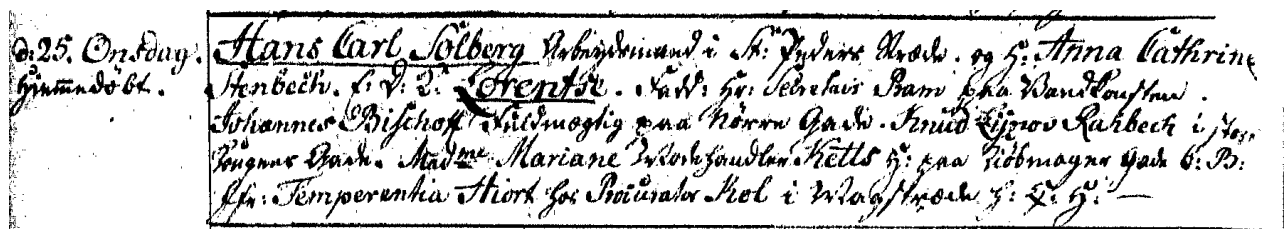 d: 25. Onsdag. Hans Carl Sølberg Arbeidsmand i St: Peders Stræde. og H: Anna Cathrine
Hjemmedøbt. Stenbech. F: D: L: Lorentse. Fadd: Hr: Secretair Ram paa Vandkonsten.
Johannes Bischoff Fuldmægtig paa Nørre Gade. Knud Lijnov Rahbech i store
Gade. Madme Mariane Modehandler Ketts H: paa Kiøbmager Gade b: B:
Jfr: Temperentia Hiort hos Procurator Kol i Magstræde h: H: